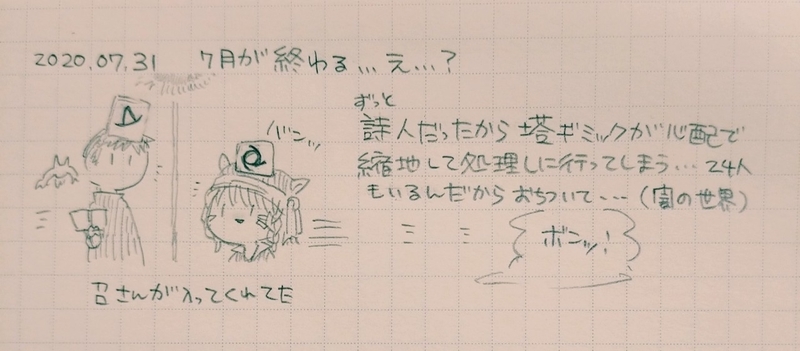 2020.07.31 7月が終わる…え…？
ずっと
詩人だったから塔ギミックが心配で
縮地して処理しに行ってしまう…24人
もいるんだからおちついて…（闇の世界）
バンッ
ボンッ！
召さんが入ってくれてた